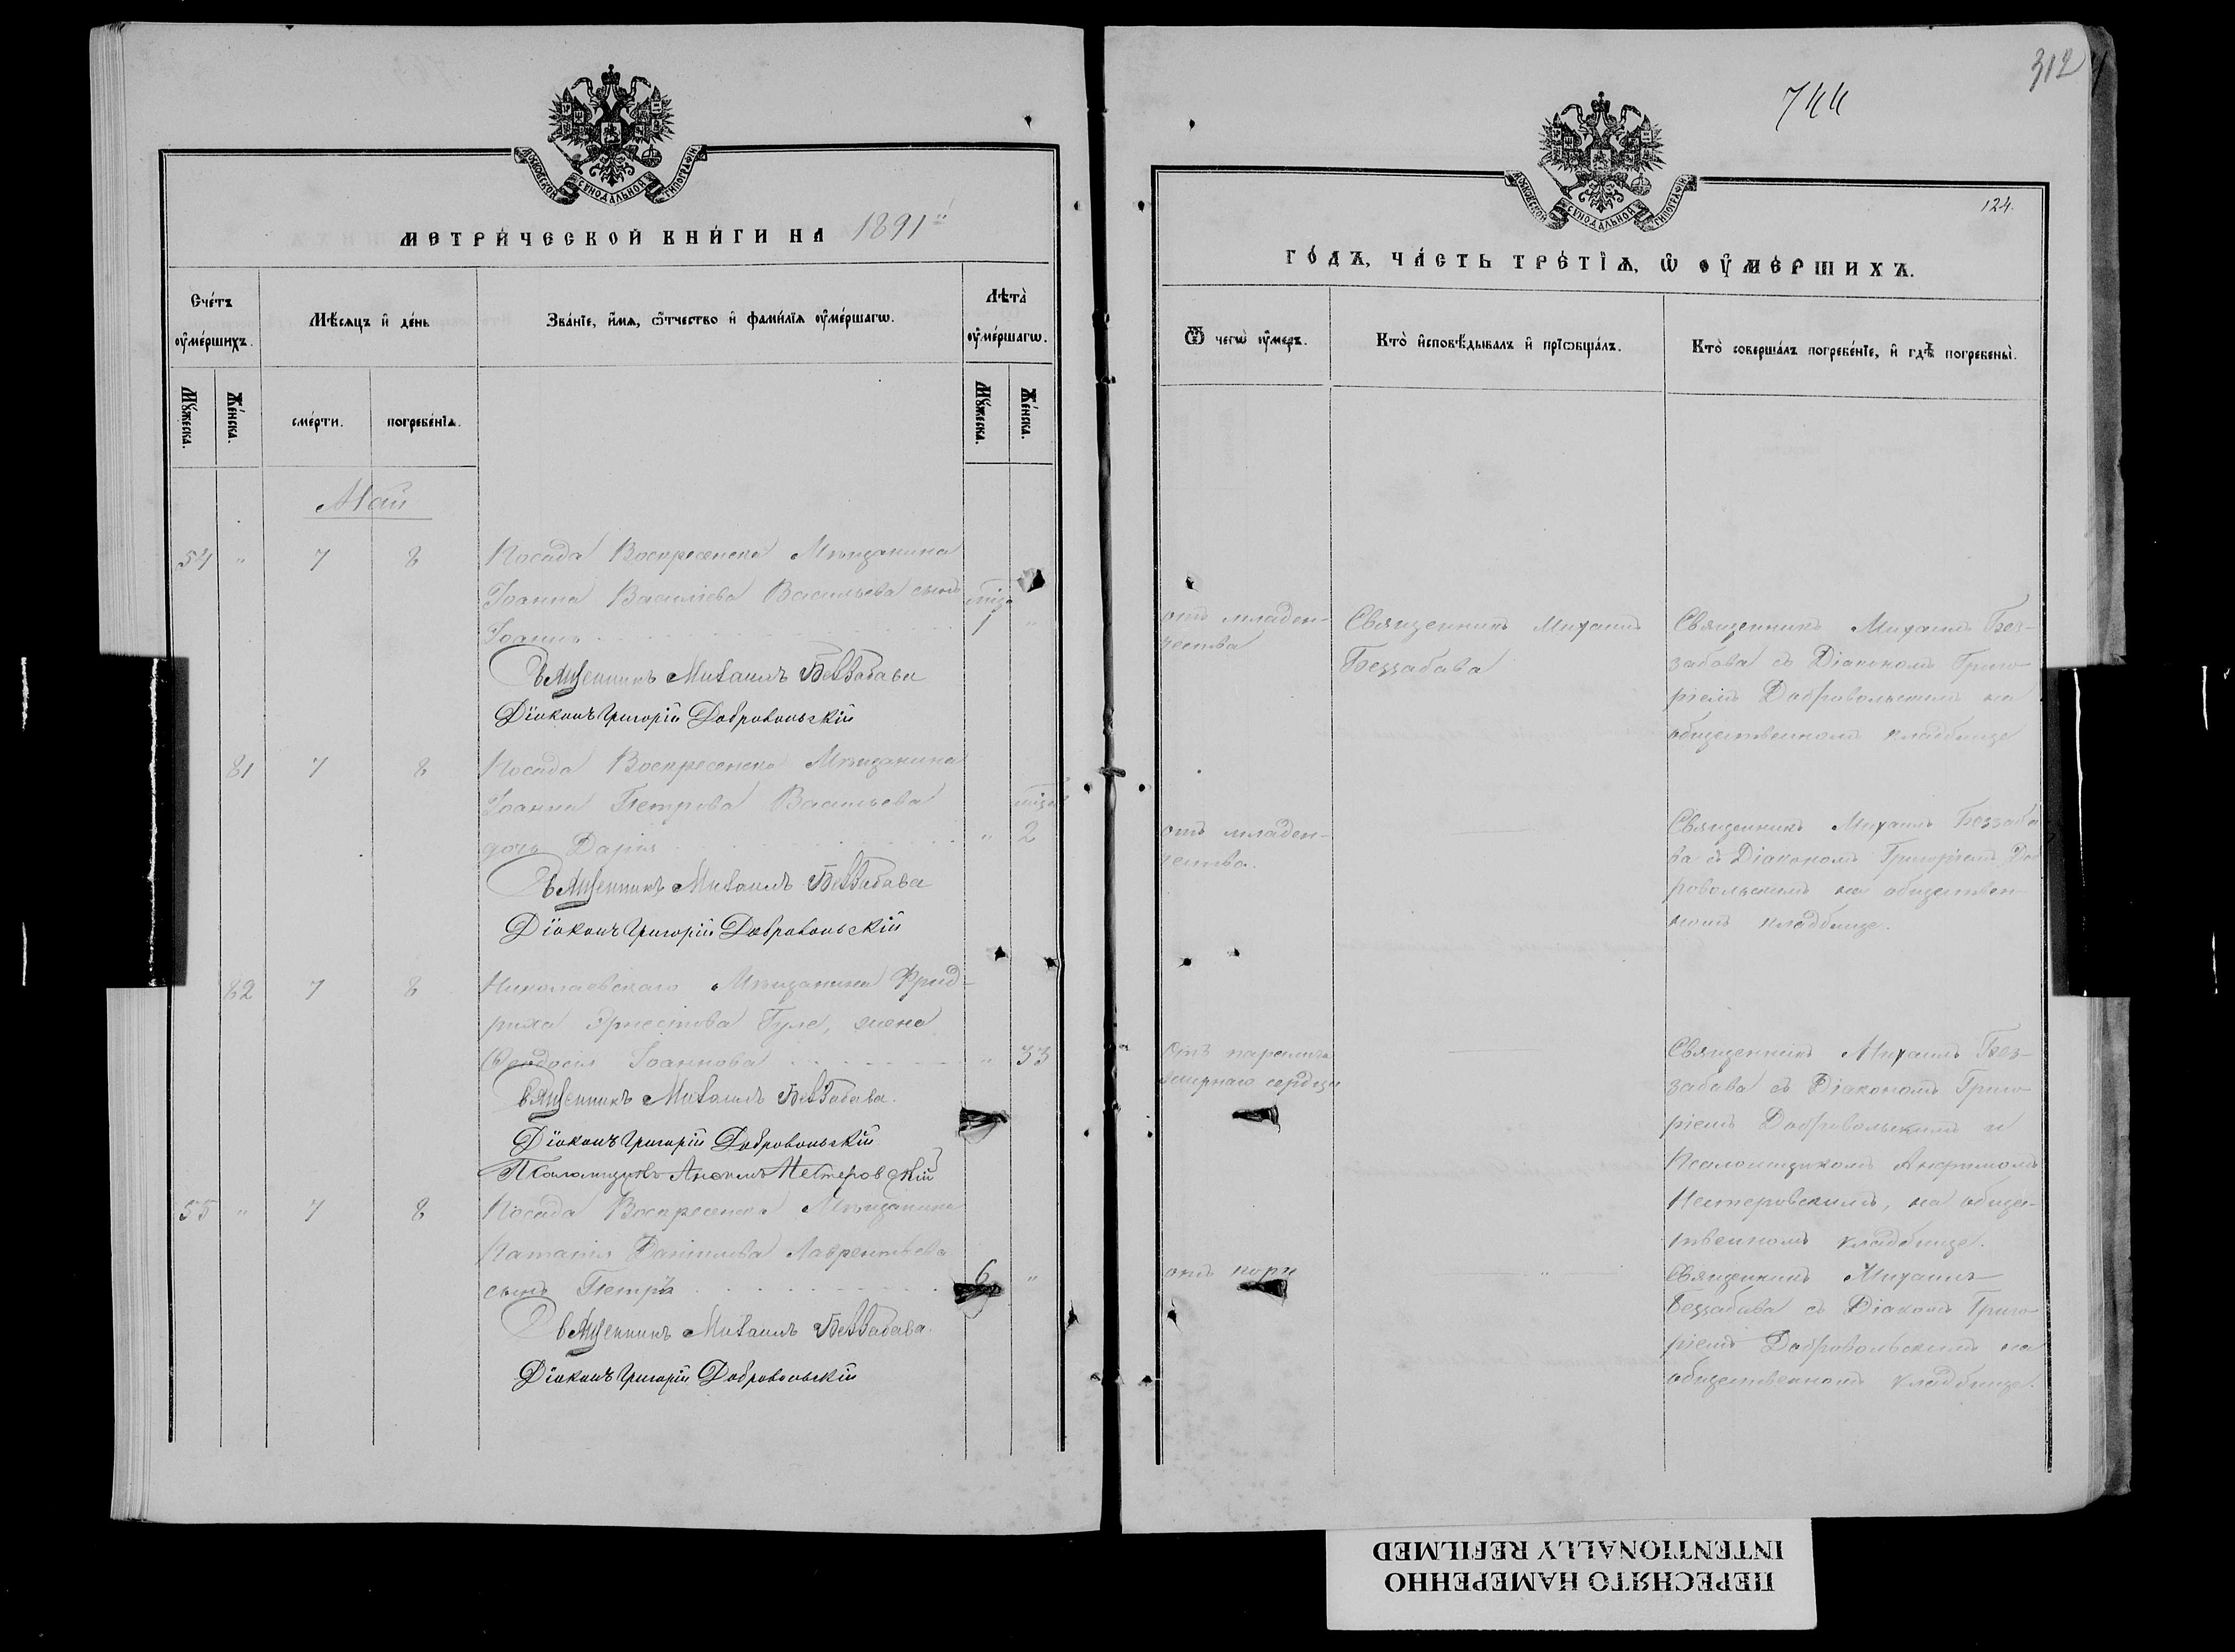 312
744
124.
МОСКОВСКОЙ СѴНОДАЛЬНОЙ ТИПОГРАФІИ
МЕТРИ́ЧЕСКОЙ КНИ́ГИ НА 1891й
Сче́тъ ᲂу҆ме́ршихъ.
Мѣ́сяцъ и҆ де́нь
Зва́нїе, и҆́мѧ, ѻ҆́тчество и҆ фами́лїѧ ᲂу҆ме́ршагѡ.
Лѣта̀ ᲂу҆ме́ршагѡ.
Мꙋ́жеска.
Же́нска.
сме́рти.
погребе́нїѧ.
Мꙋ́жеска.
Же́нска.
Май
54 " 7 8 Посада Воскресенска Мѣщанина
Іоанна Василіева Васильева сынъ
Іоаннъ 1 "
Священникъ Михаилъ Беззабава
Діаконъ Григорій Добровольскій
81 7 8 Посада Воскресенска Мѣщанина
Іоанна Петрова Васильева
дочь Дарія " 2
Священникъ Михаилъ Беззабава
Діаконъ Григорій Добровольскій
82 7 8 Николаевскаго Мѣщанина Фрид-
риха Эрнестова Гуле, жена
Ѳеодосія Іоаннова " 33
Священникъ Михаилъ Беззабава.
Діаконъ Григорій Добровольскій
Псаломщикъ Анѳимъ Нестеровскій
55 " 7 8 Посада Воскресенска Мѣщанина
Лаврентьева
сынъ Петръ 6 "
Священникъ Михаилъ Беззабава.
Діаконъ Григорій Добровольскій
МОСКОВСКОЙ СѴНОДАЛЬНОЙ ТИПОГРАФІИ
ГО́ДЪ, ЧА́СТЬ ТРЕ́ТЇѦ, Ѡ҆ ОУ҆МЕ́РШИХЪ.
Ѿ чегѡ̀ ᲂу҆́меръ.
Кто̀ и҆сповѣ́дывалъ и҆ прїѡбща́лъ.
Кто̀ соверша́лъ погребе́нїе, и҆ гдѣ̀ погребены̀.
отъ младен-
чества
Священникъ Михаилъ
Беззабава
Священникъ Михаилъ Без-
забава съ Діакономъ Григо
ріемъ Добровольскимъ на
общественномъ кладбище
отъ младен-
чества.
Священникъ Михаилъ Беззаба
ва съ Діакономъ Григоріемъ Доб
ровольскимъ на обществен-
номъ кладбище.
Отъ паралича
сердца
Священникъ Михаилъ Без-
забава съ Діакономъ Григо
ріемъ Добровольскимъ и
Псаломщикомъ Анфимомъ
Нестеровскимъ, на общес-
твенномъ кладбище.
отъ кори
Священникъ Михаилъ
Беззабава съ Діаконъ Григо
ріемъ Добровольскимъ на
общественномъ кладбище.
ПЕРЕСНЯТО НАМЕРЕННО
INTENTIONALLY REFILMED